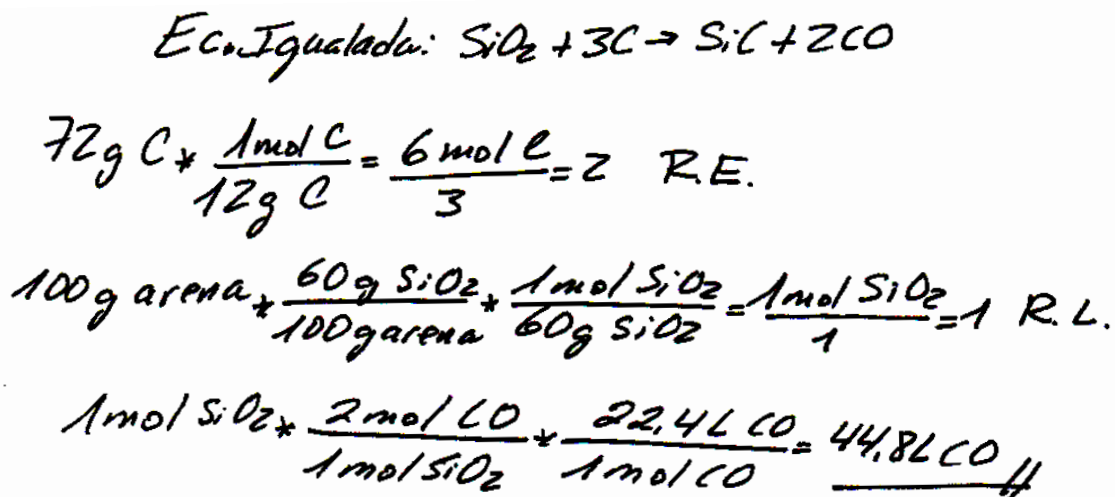 Ec. Igualada: SiO₂ + 3C → SiC + 2CO
72g C * 1mol C / 12g C = 6 mol C / 3 = 2 R.E.
100g arena * 60g SiO₂ / 100g arena * 1mol SiO₂ / 60g SiO₂ = 1mol SiO₂ / 1 = 1 R.L.
1mol SiO₂ * 2mol CO / 1mol SiO₂ * 22,4L CO / 1mol CO = 44,8L CO //